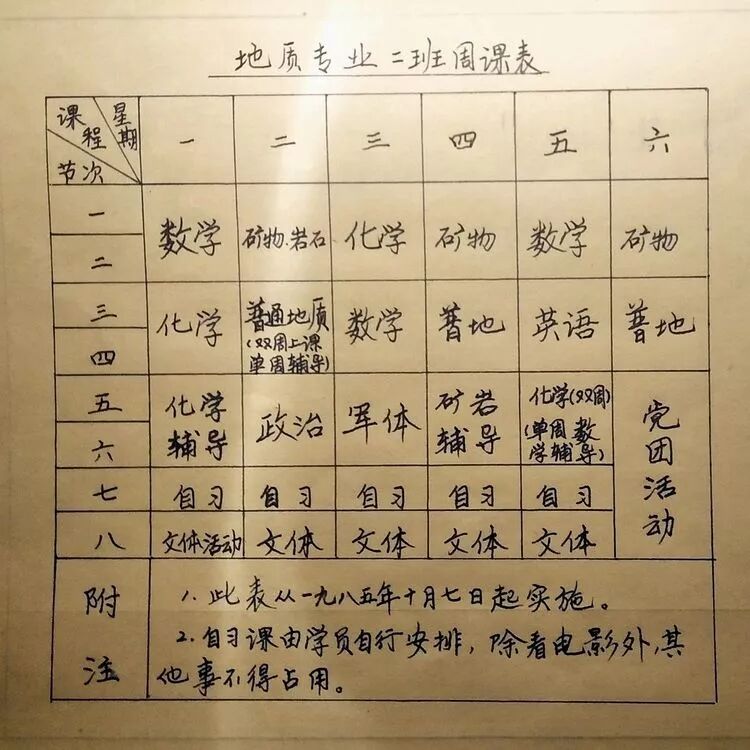 地质专业二班周课表
课程 星期 一 二 三 四 五 六
节次
一 二 数学 矿物.岩石 化学 矿物 数学 矿物
三 四 化学 普通地质 数学 普地 英语 普地
(双周上课
单周辅导)
五 六 化学 政治 军体 矿岩 化学(双周) 党团活动
辅导 辅导 (单周数
学辅导)
七 自习 自习 自习 自习 自习
八 文体活动 文体 文体 文体 文体
附注
1.此表从一九八五年十月七日起实施。
2.自习课由学员自行安排，除看电影外，其
他事不得占用。